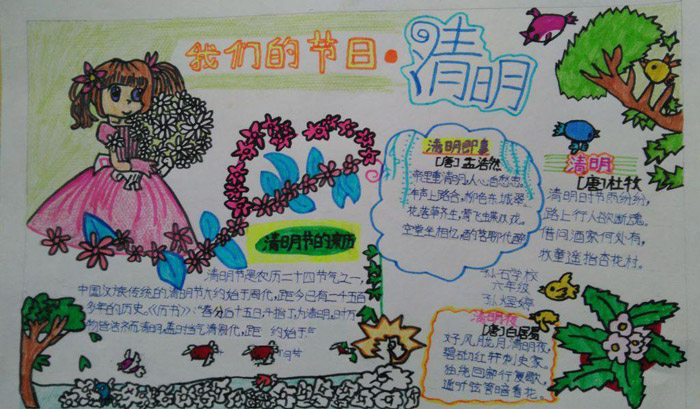 我们的节日·清明
清明即事
[唐]孟浩然
帝里重清明,人心自愁思。
车声上路合,柳色东城翠
花落草齐生,莺飞蝶双戏。
空堂坐相忆,酌茗聊代醉
清明
[唐]杜牧
清明时节雨纷纷,
路上行人欲断魂。
借问酒家何处有,
牧童遥指杏花村。
清明节的来历
清明节是农历二十四节气之一,
中国汉族传统的清明节大约始于周代,距今已有二千五百
多年的历史。《历书》:"春分后十五日,斗指丁,为清明,时万
物皆
齐而清明,盖时当气清
石学校
六年级
清明夜
[唐]白居易
好风胧月清明夜,
碧砌红轩刺史家。
独绕回廊行复歇,
遥听弦管暗看花。